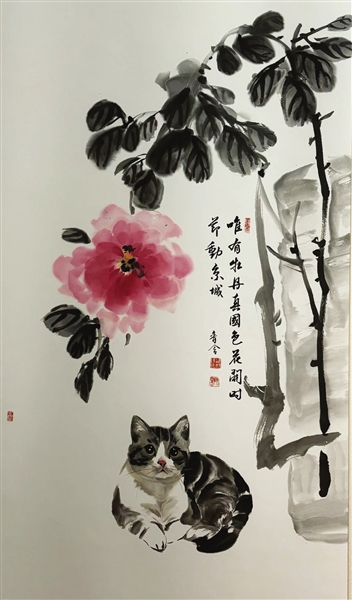 唯有牡丹真國色花開时
節動京城